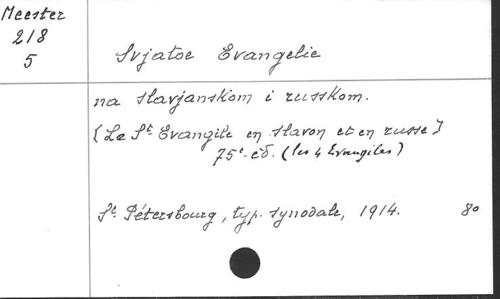 Meester
218
5
Svjatoe Evangelie
na slavjanskom i russkom.
[Le St Evangile en slavon et en russe]
75e éd. (les 4 Evangiles)
St. Pétersbourg, typ. synodale, 1914. 8o